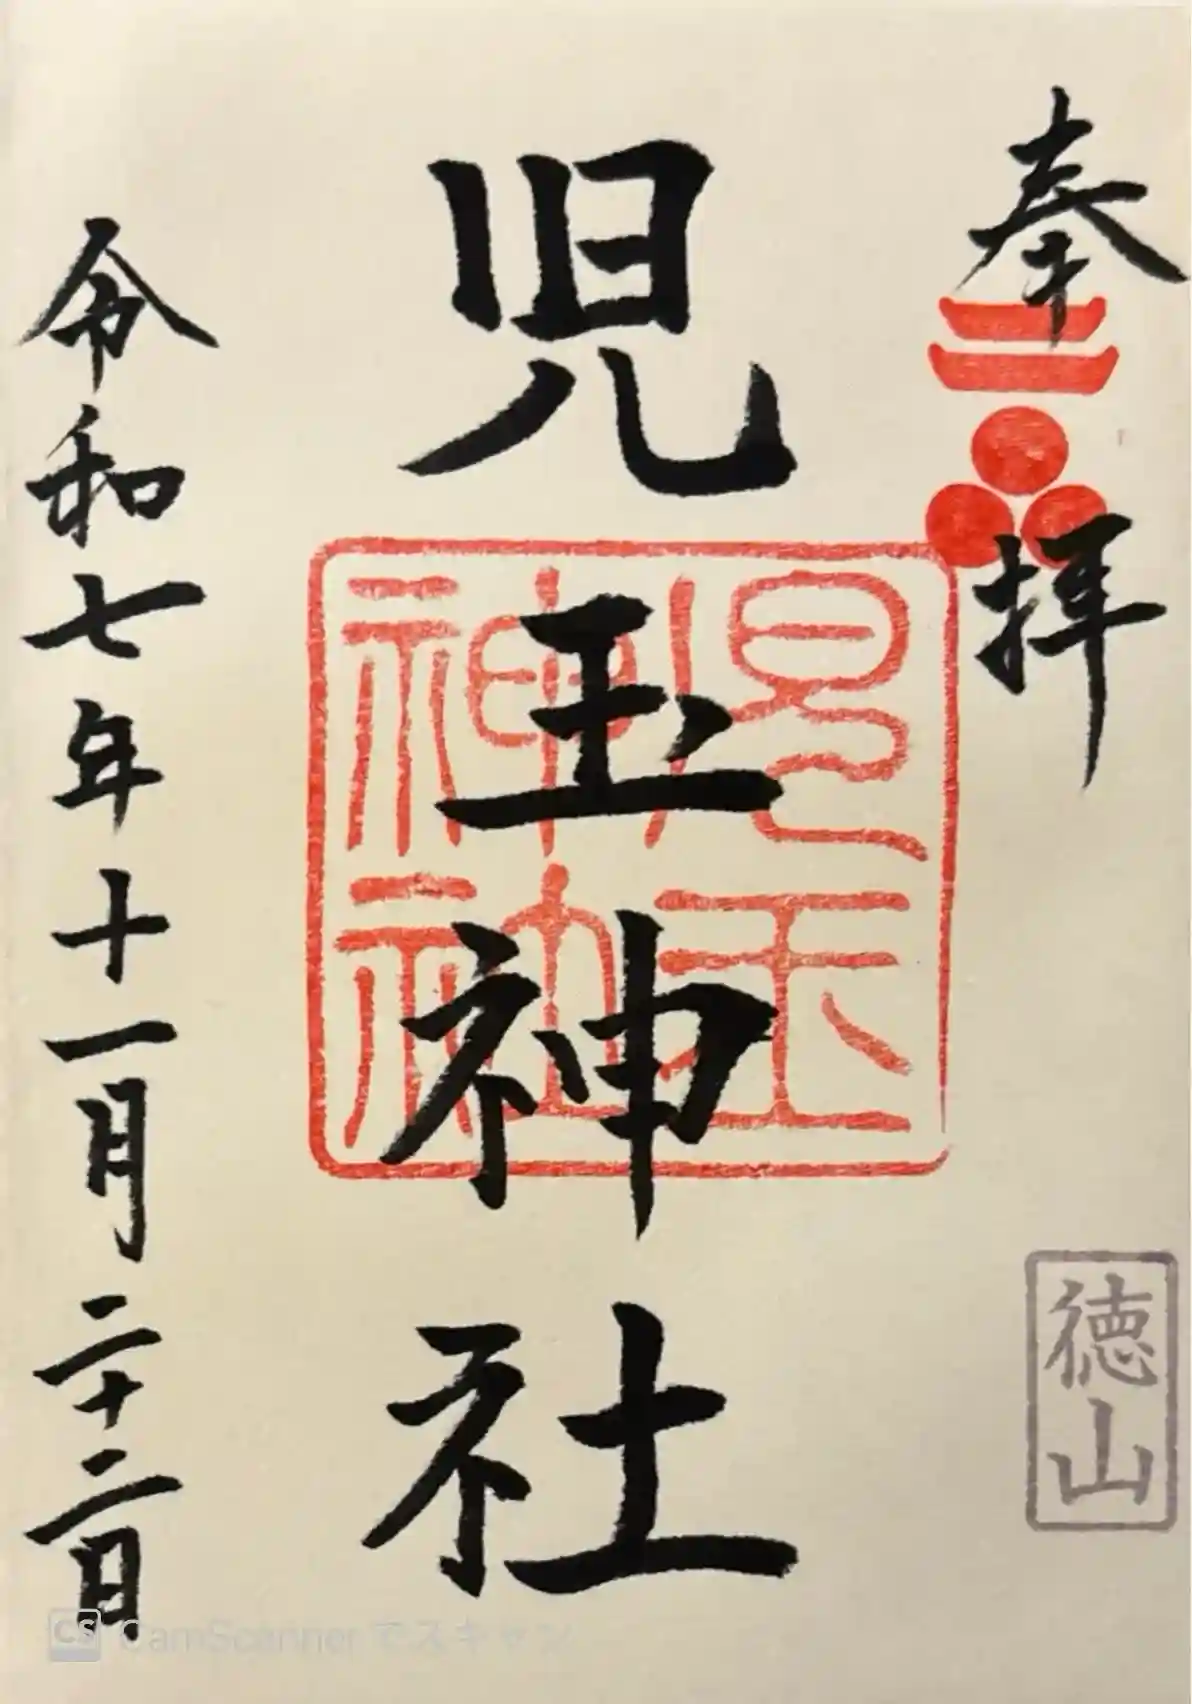 奉拝
徳山
児玉神社
児玉
神社
令和七年十一月二十二日
CS CamScanner でスキャン